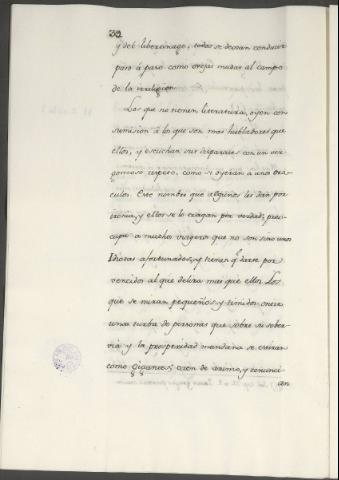 32
y del libertinage, todos se dexan conducir
paso á paso como ovejas mudas al campo
de la irreligion.
Los que no tienen literatura, oyen con
sumision á los que son mas habladores que
ellos, y escuchan sus disparates con un ver-
gonzoso respeto, como si oyeran á unos ora-
culos. Este nombre que algunos les dan por
ironía, y ellos se lo tragan por verdad, preo-
cupa a muchos viageros que no son sino unos
Idiotas afortunados, y tienen q.e darse por
vencidos al que delira mas que ellos. Los
que se miran pequeños y timidos entre
una turba de personas que sobre su sober-
via y la prosperidad mundana se estiran
como gigantes, caen de animo, y renunci-
an